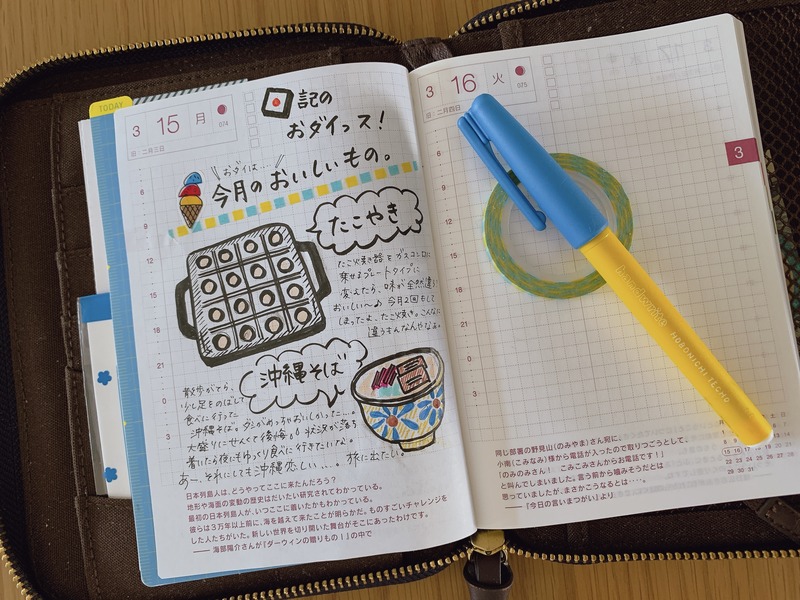 TODAY
3 15 月
074
旧 二月三日
記の
おダイっス!
おダイは…
今月のおいしいもの。
6
9
12
15
18
21
0
3
たこやき
たこ焼き器をガスコンロに
乗せるプレートタイプに
変えたら、味が全然違う
おいしい〜♪ 今月2回もして
しまったよ、たこ焼き。こんなに
違うもんなんやなぁ。
沖縄そば
散歩がてら、
少し足をのばして
食べに行った
沖縄そば。ダシがめっちゃおいしかった…。
大盛りにせんくて後悔。状況が落ち
着いたら夜にもゆっくり食べに行きたいな。
あ〜、それにしても沖縄恋しい…。旅に出たい。
日本列島人は、どうやってここに来たんだろう?
地形や海面の変動の歴史はだいたい研究されてわかっている。
最初の日本列島人が、いつここに着いたかもわかっている。
彼らは3万年以上前に、海を越えて来たことが明らかだ。ものすごいチャレンジを
した人たちがいた。新しい世界を切り開いた舞台がそこにあったわけです。
── 海部陽介さんが『ダーウィンの贈りものI』の中で
3 16 火
075
旧 二月四日
3
6
9
12
15
18
21
0
3
HOBONICHI TECHO
同じ部署の野見山(のみやま)さん宛に、
小南(こみなみ)様から電話が入ったので取りつごうとして、
「のみのみさん! こみこみさんからお電話です!」
と叫んでしまいました。言う前から噛みそうだとは
思っていましたが、まさかこうなるとは‥‥。
──『今日の言いまつがい』より
15 16
22 23 24 25 26 27 28
29 30 31